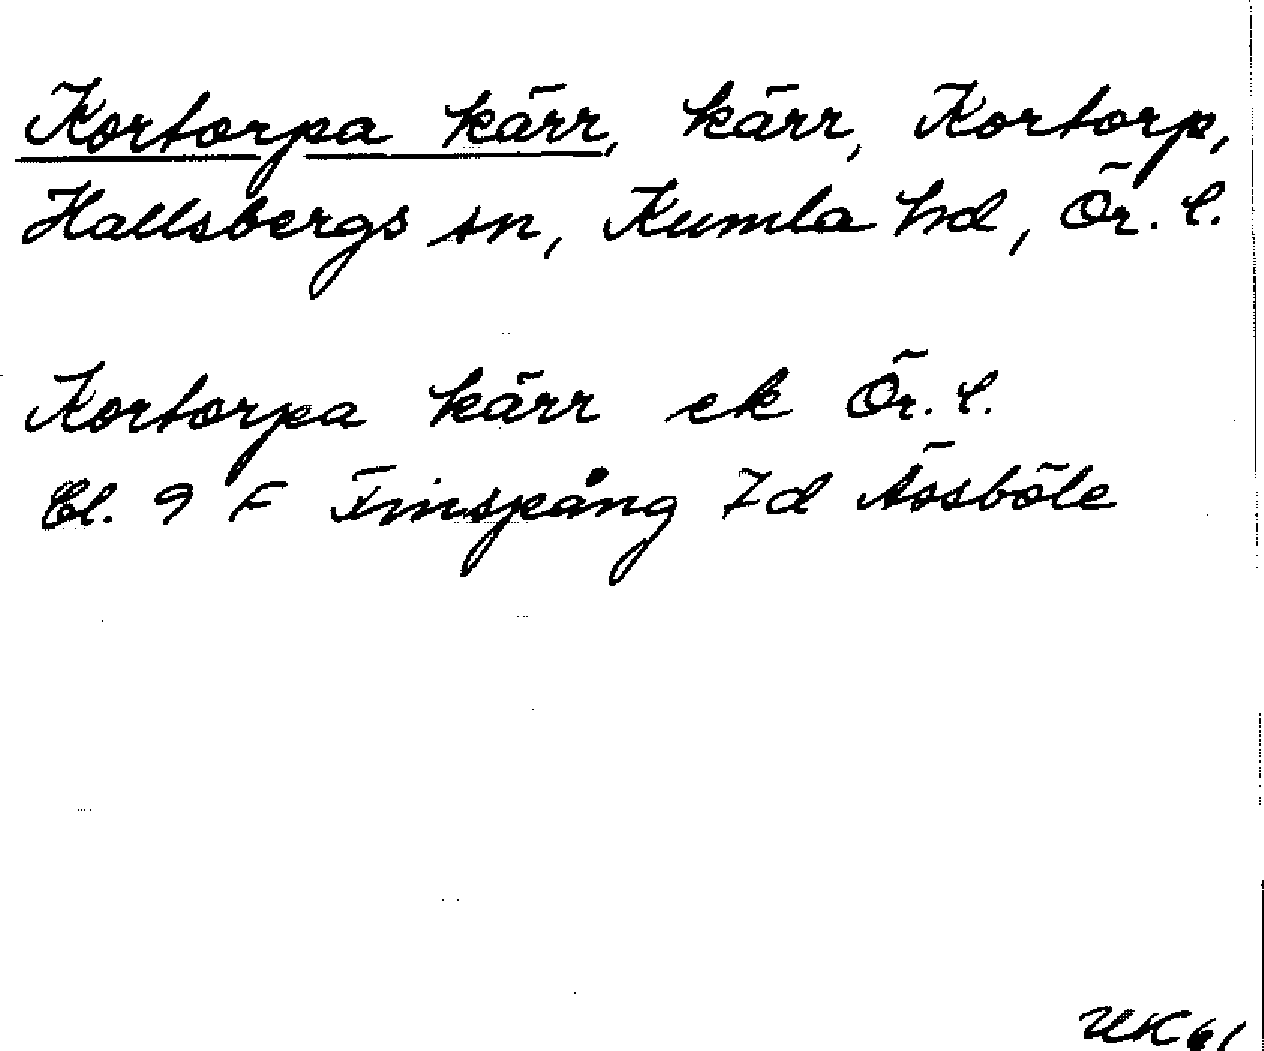 Kortorpa kärr, kärr, Kortorp,
Hallsbergs sn, Kumla hd, Ör. l.
Kortorpa kärr ek Ör. l.
Bl. 9 F Finspång 7d Åssböle
UK 61